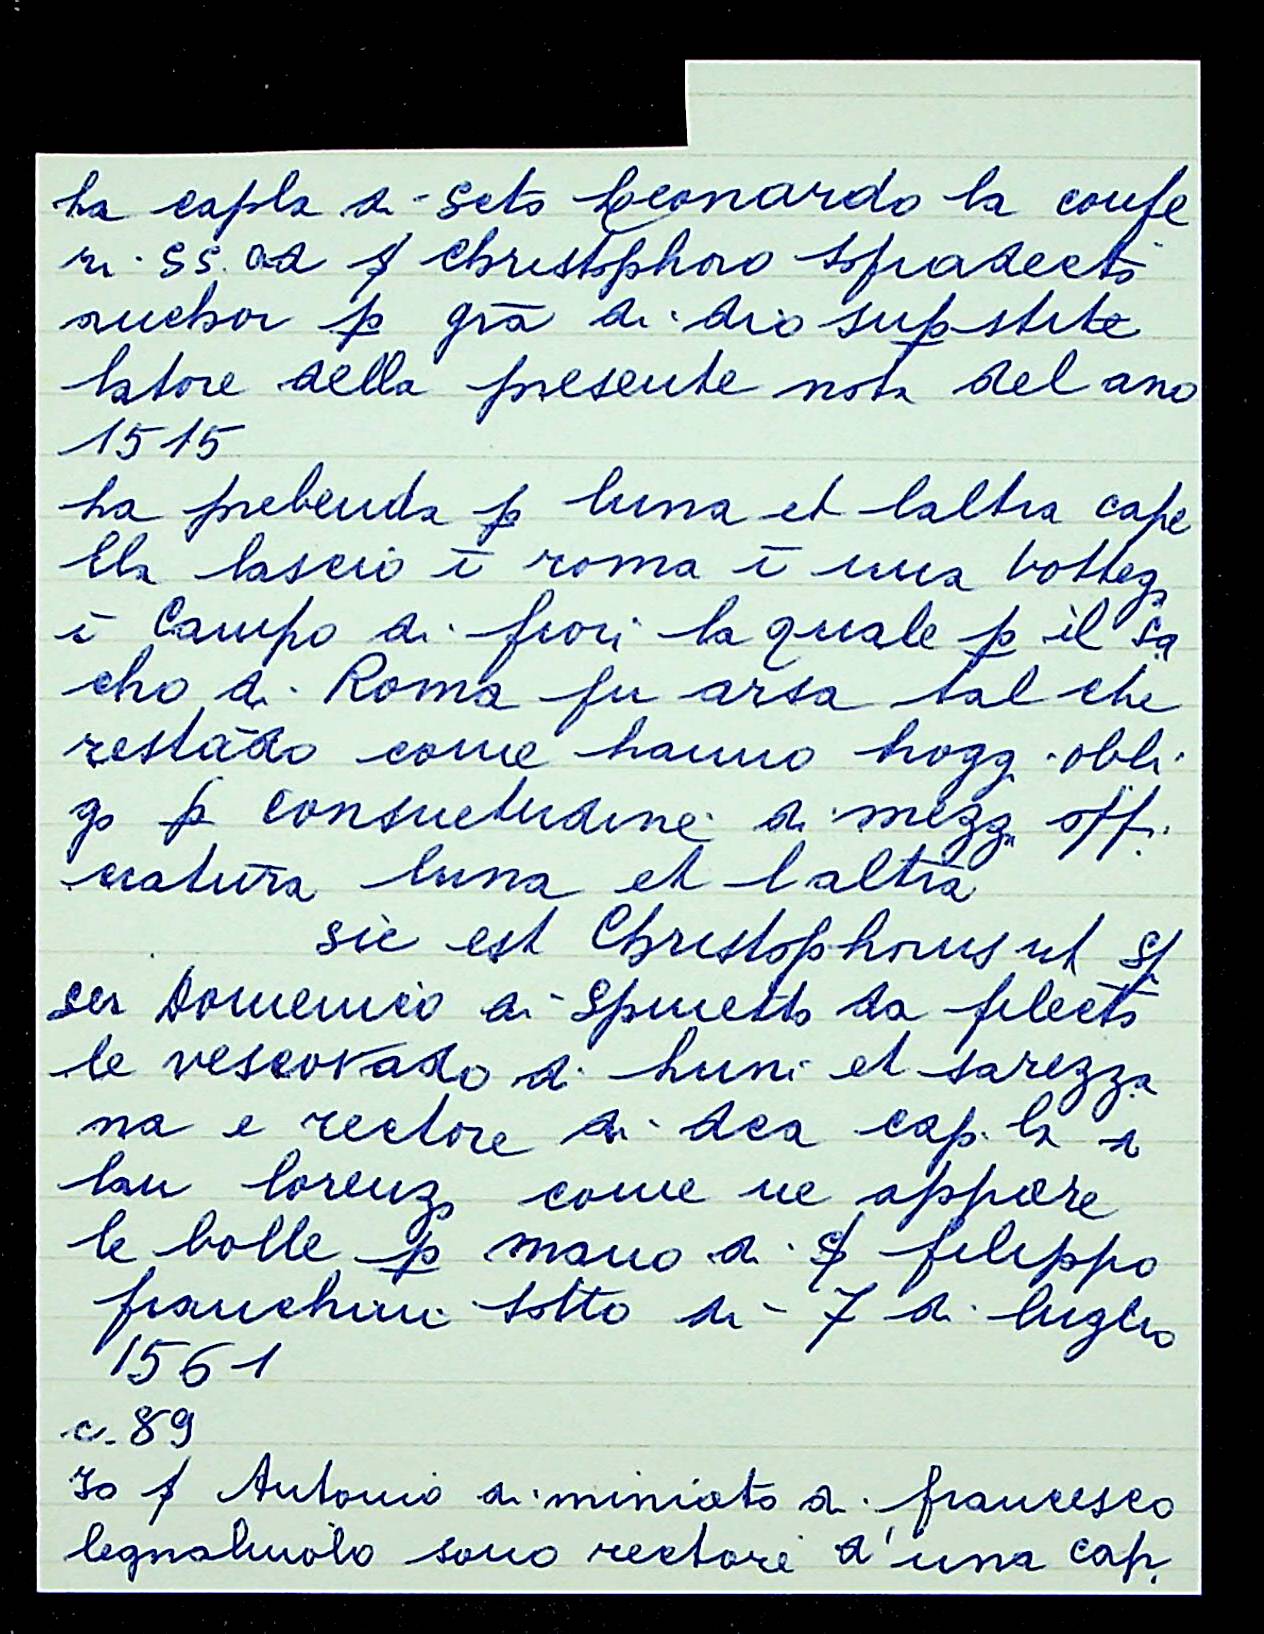 La capla di Scto Leonardo la confe
ri. SS. ad ſ Christophoro sopradecto
anchor ꝑ grā di dio supstite
latore della presente nota del ano
1515
La prebenda ꝑ luna et laltra cape
lla lascio ī roma ī una bottega
ī Campo di fiori la quale ꝑ il sa
cho di Roma fu arsa tal che
restādo come hanno hoggi obli
go ꝑ consuetudine di mezza offi
ciatura luna et laltra
sic est Christophorus ut sſ
ser Domenico di Spinetto da filecto
le vescovado di Luni et sarezza
na e rectore di dca cap.la i
san lorenzo come ne appare
le bolle ꝑ mano di ſ filippo
franchini sotto di 7 di luglio
1561
c. 89
Io ſ Antonio di miniato di francesco
legnaiuolo sono rectore d'una cap.